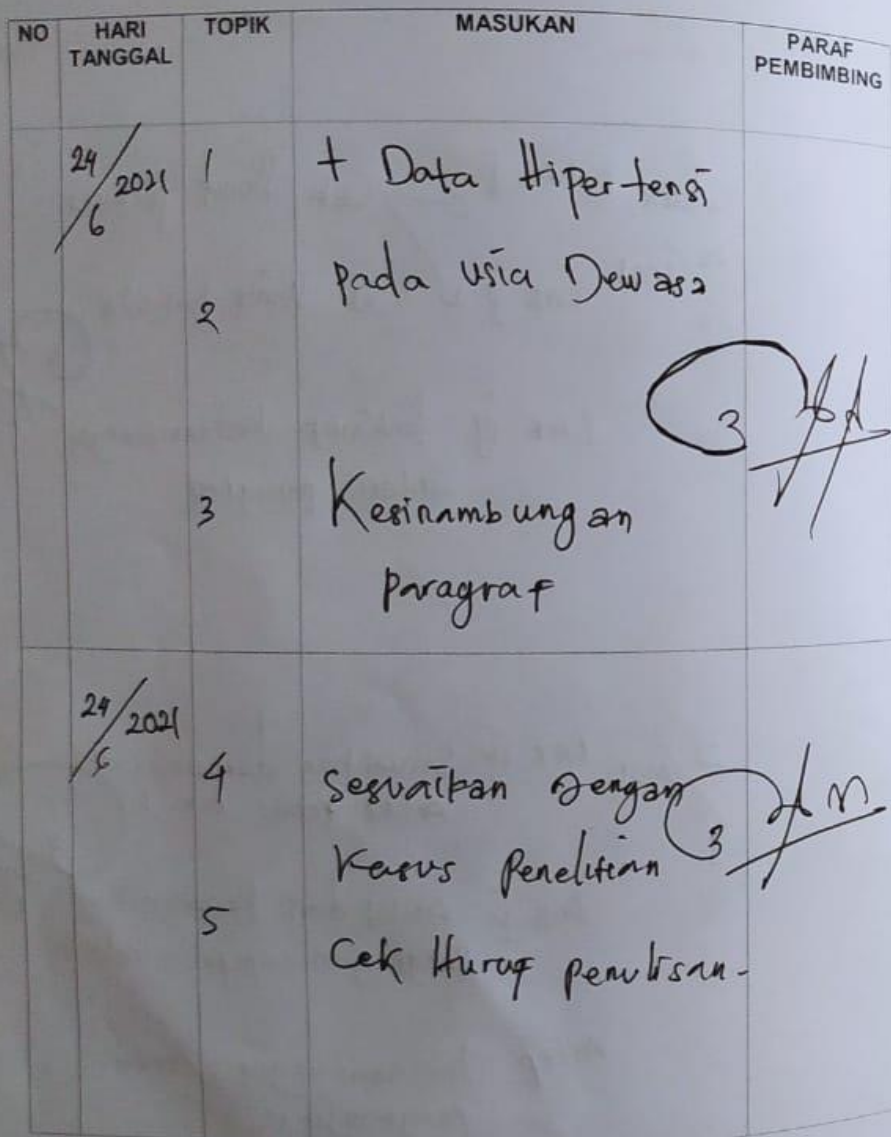 NO HARI TANGGAL TOPIK MASUKAN PARAF PEMBIMBING
24/6 2021 1 + Data Hipertensi
pada usia Dewasa
2
3
3 Kesinambungan
paragraf
24/6 2021
4 Sesuaikan dengan
Kasus Penelitian 3
5
Cek Huruf penulisan-